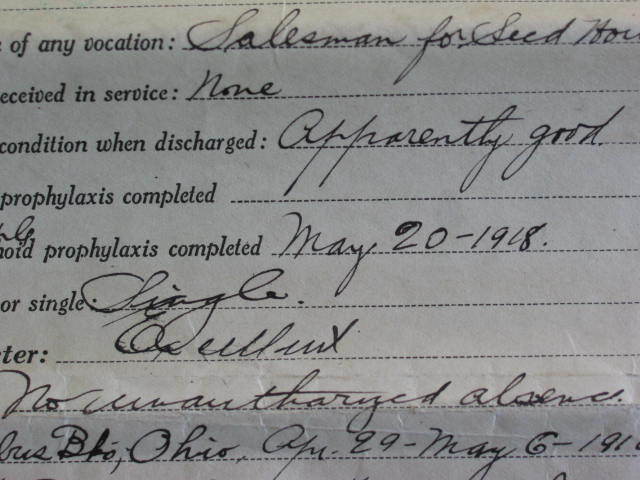 e of any vocation: Salesman for Seed Hou
eceived in service: None
condition when discharged: Apparently good
prophylaxis completed
hoid prophylaxis completed May 20-1918.
or single: Single.
cter: Excellent
No unauthorized absence.
bus Bks, Ohio, Apr. 29-May 6-191